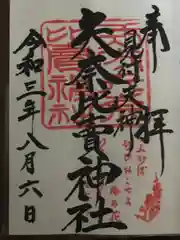 奉拝
見付天神
矢奈比賣神社
令和三年八月六日